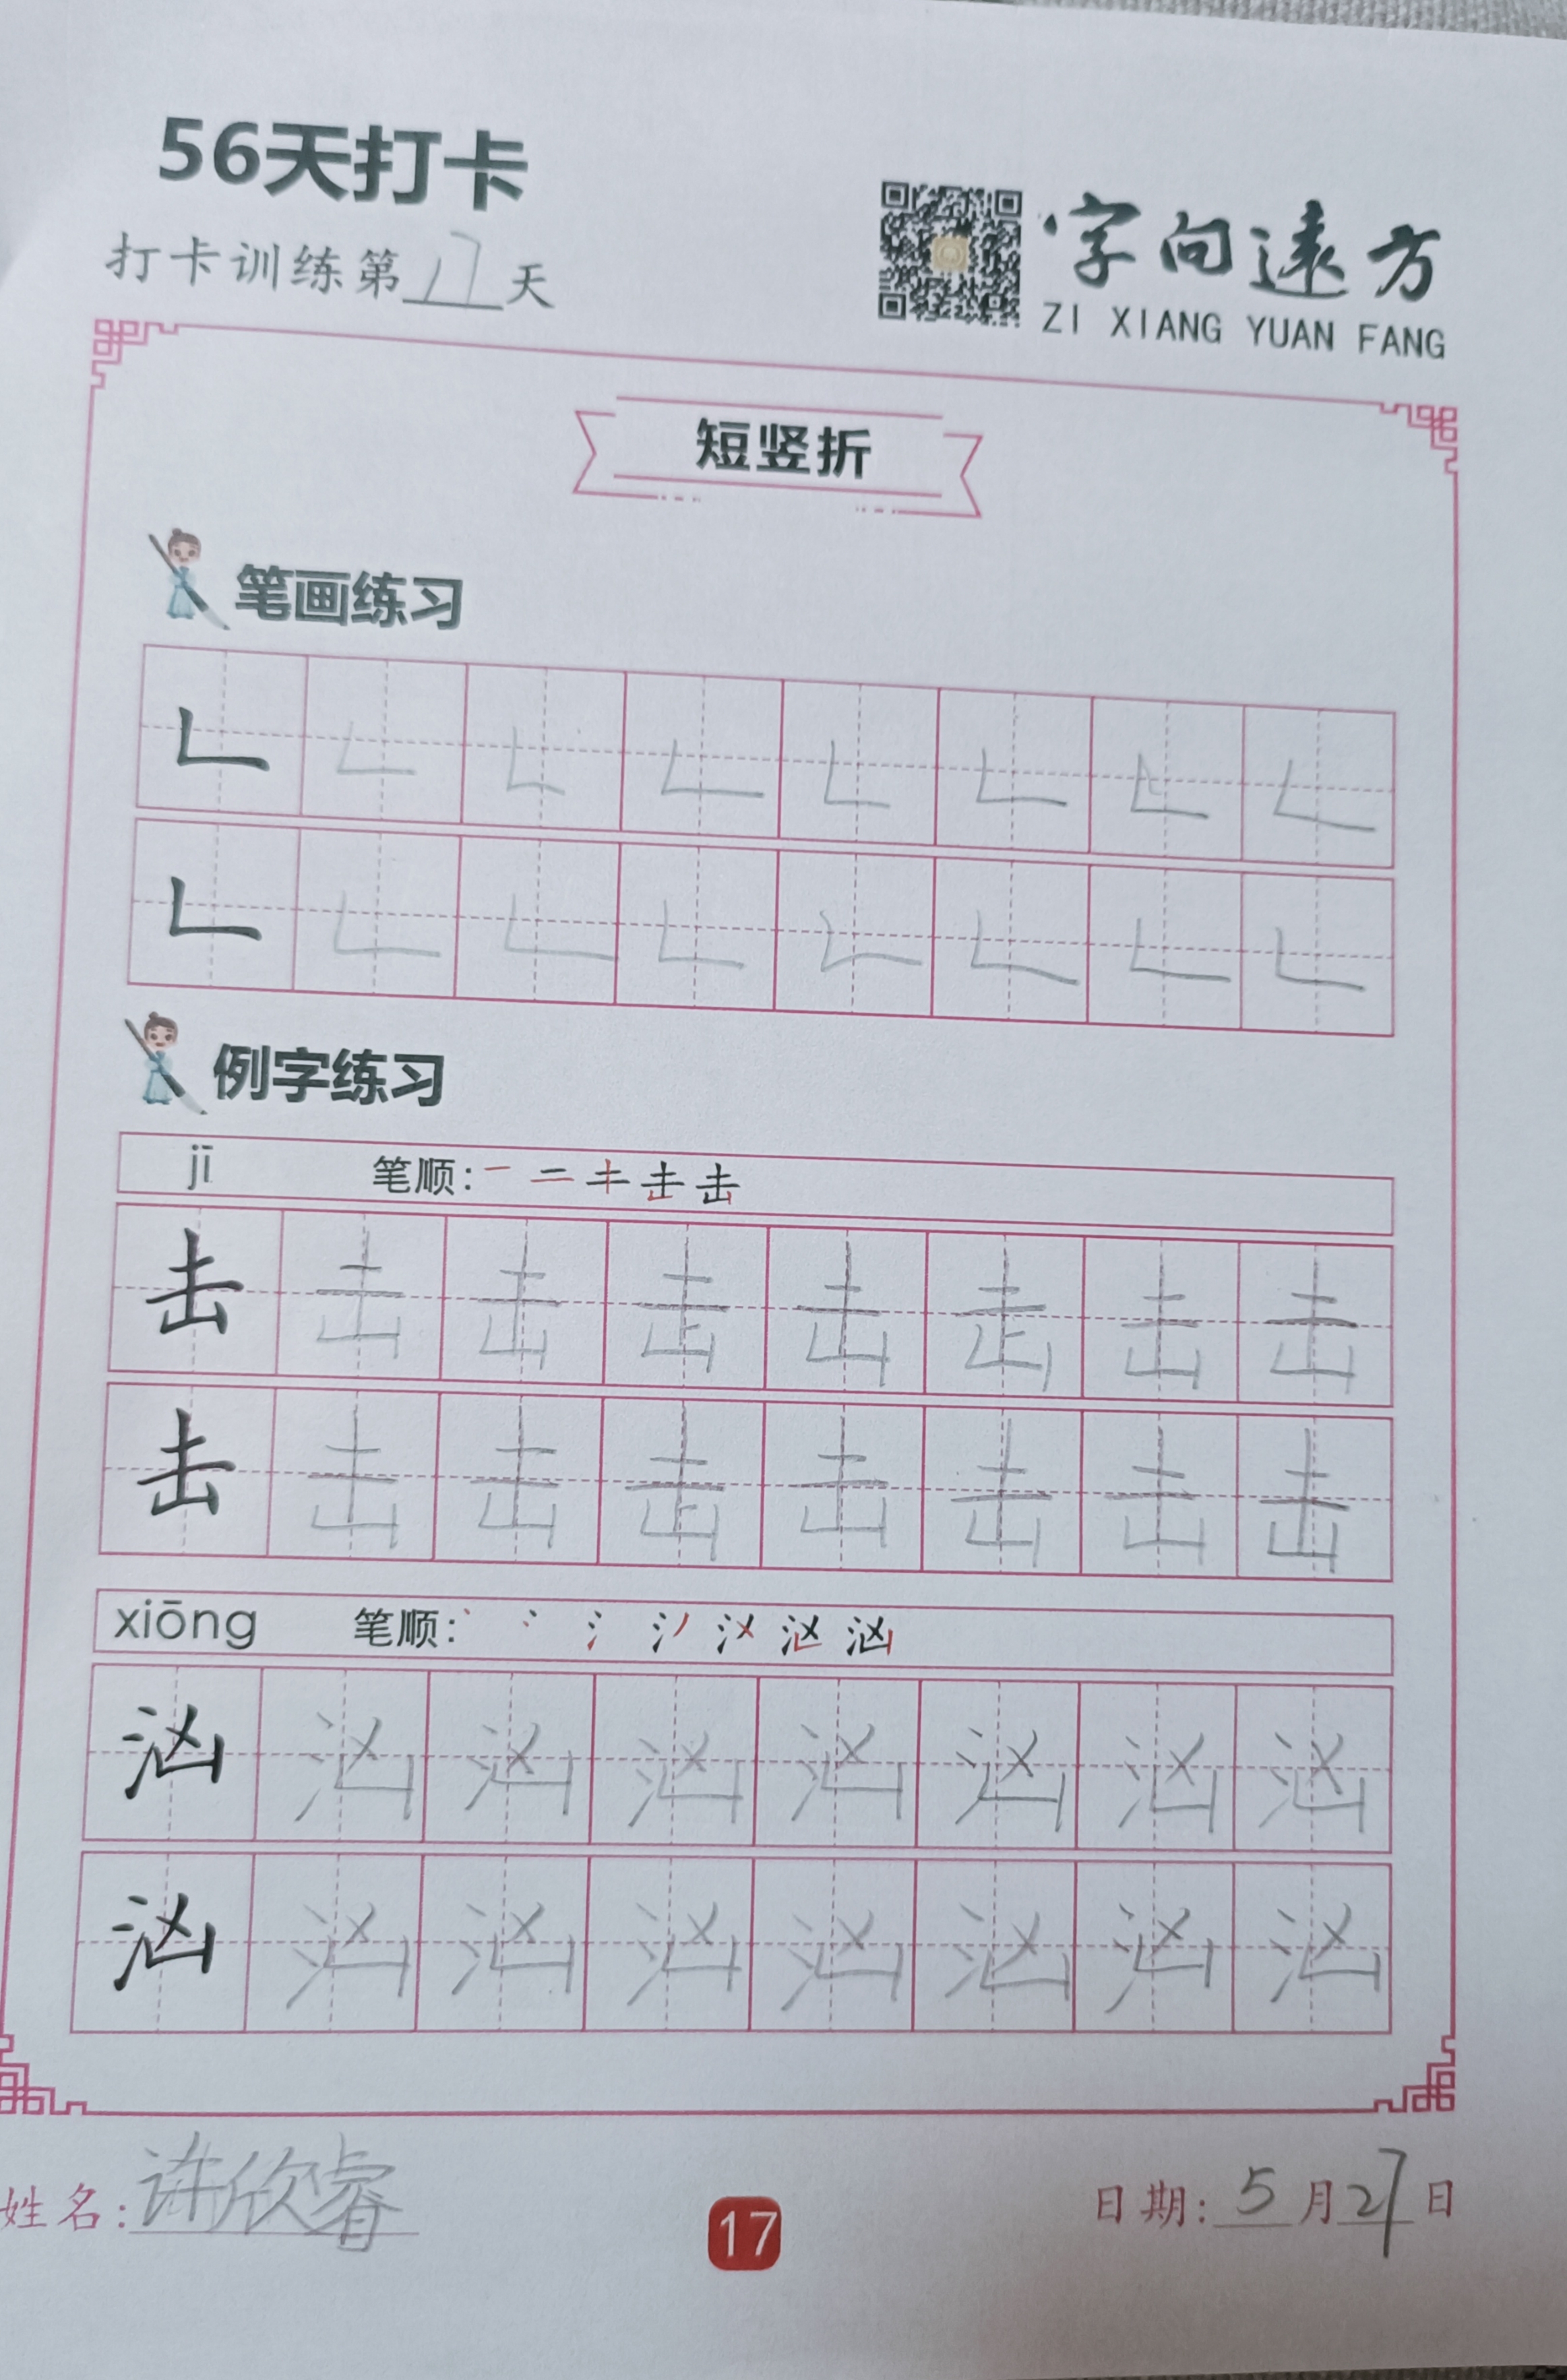 56天打卡
打卡训练第17天
字向遠方
ZI XIANG YUAN FANG
短竖折
笔画练习
例字练习
jī 笔顺:
击 击 击 击 击 击 击 击
击 击 击 击 击 击 击 击
xiōng 笔顺:
汹 汹 汹 汹 汹 汹 汹 汹
汹 汹 汹 汹 汹 汹 汹 汹
姓名:许欣睿
17
日期:5月27日